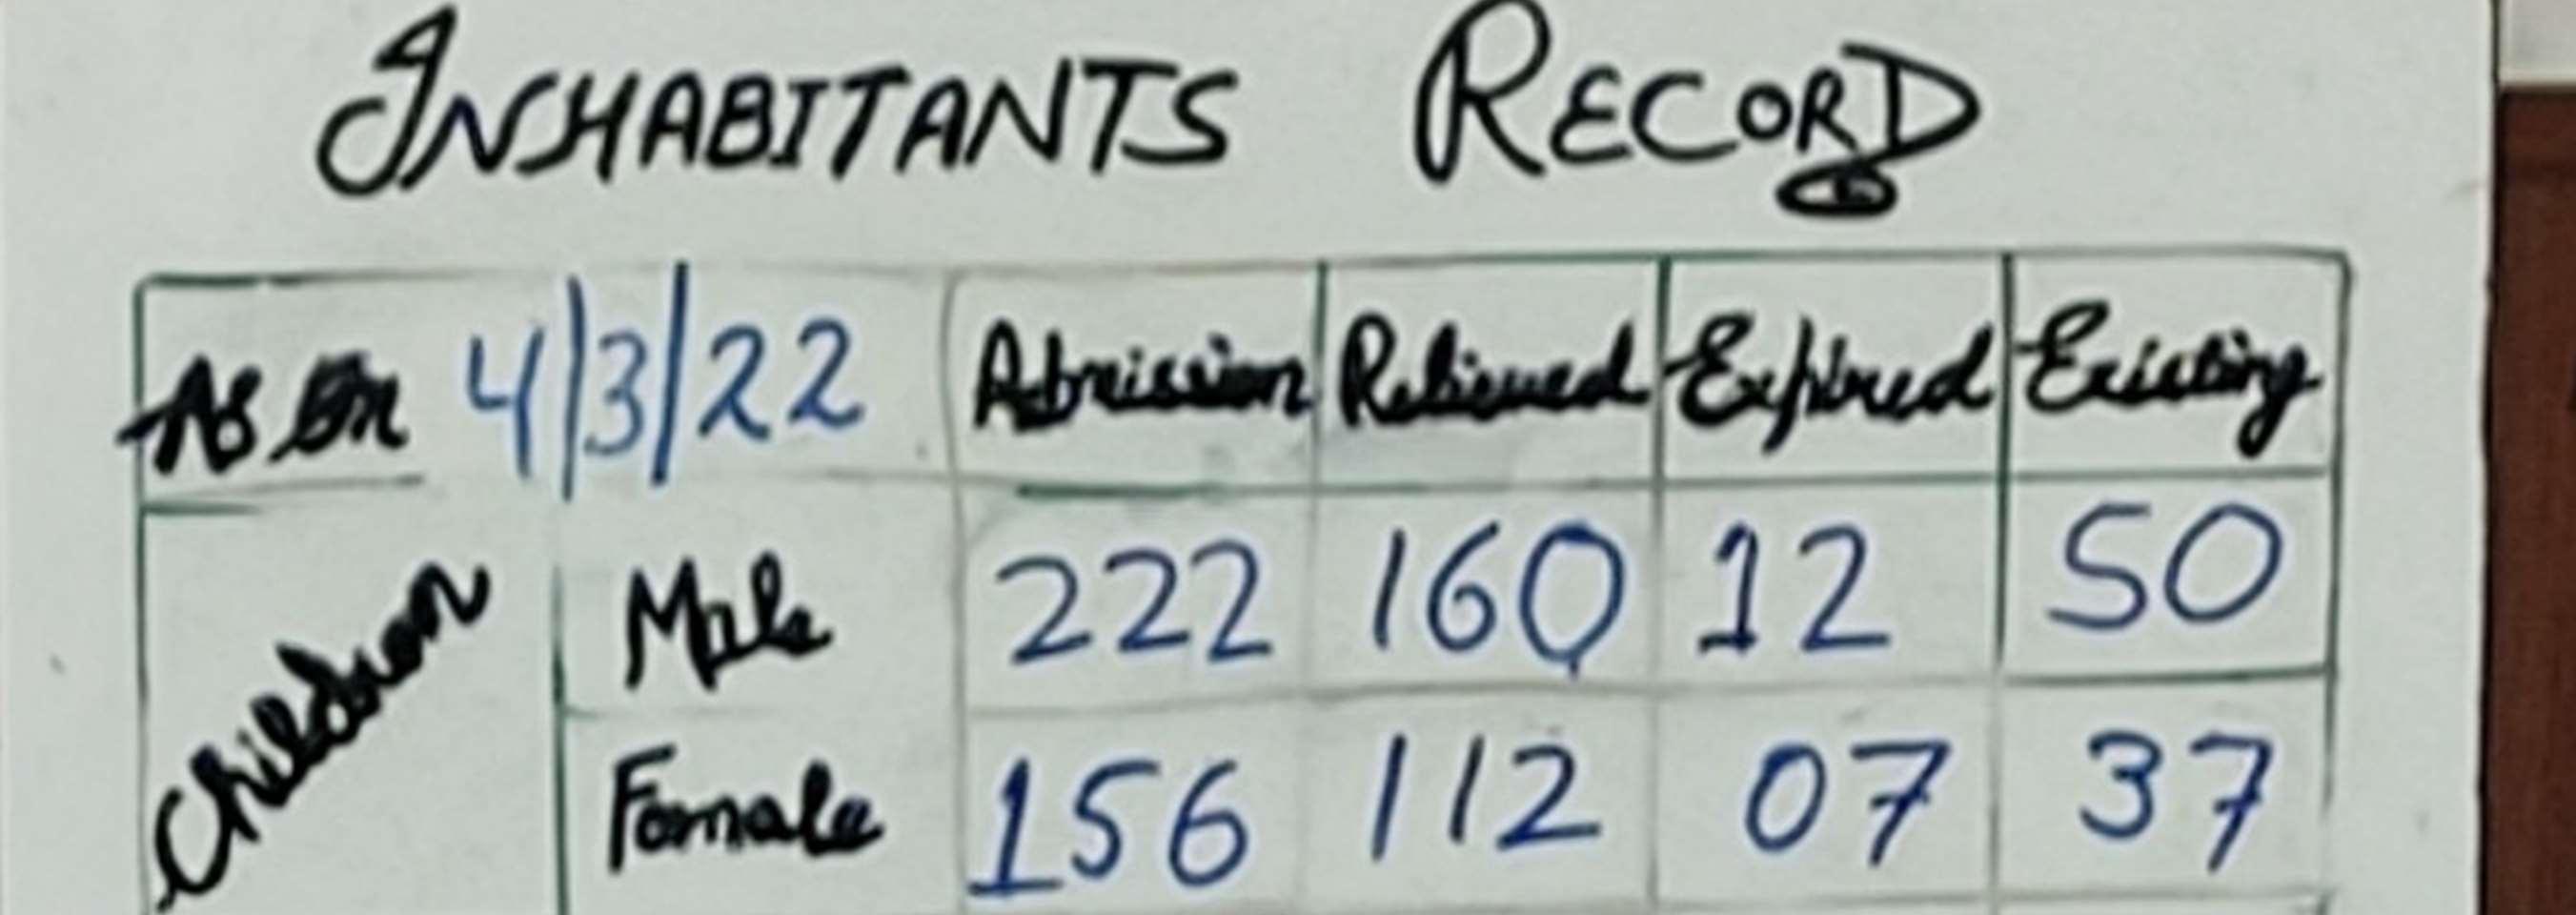 INHABITANTS RECORD
As On 4/3/22 Admission Relieved Expired Existing
Children Male 222 160 12 50
Female 156 112 07 37